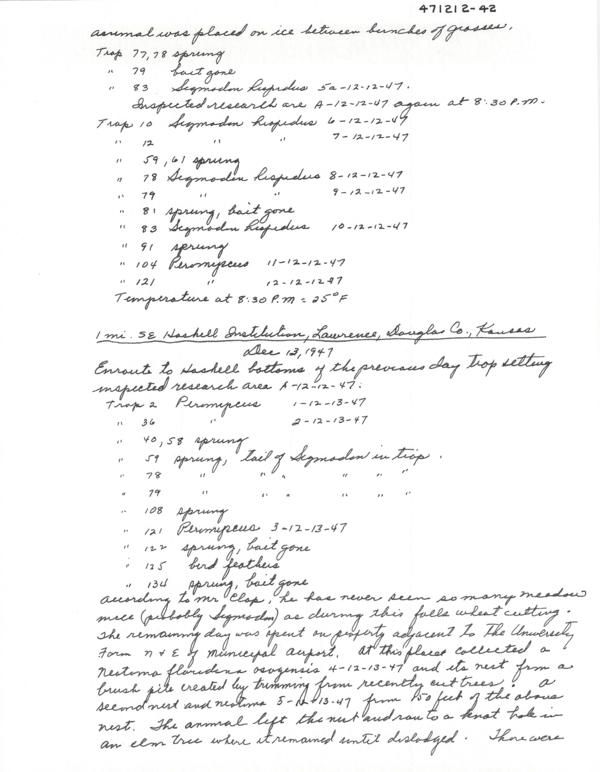 471212-42
animal was placed on ice between bunches of grasses.
Trap 77, 78 sprung
" 79 bait gone
" 83 Sigmodon hispidus 5a-12-12-47.
Inspected research are A-12-12-47 again at 8:30 P.M.
Trap 10 Sigmodon hispidus 6-12-12-47
" 12 " " 7-12-12-47
" 59, 61 sprung
" 78 Sigmodon hispidus 8-12-12-47
" 79 " " 9-12-12-47
" 81 sprung, bait gone
" 83 Sigmodon hispidus 10-12-12-47
" 91 sprung
" 104 Peromyscus 11-12-12-47
" 121 " 12-12-12-47
Temperature at 8:30 P.M = 25°F
1 mi. SE Haskell Institution, Lawrence, Douglas Co., Kansas
Dec 13, 1947
Enroute to Haskell bottoms of the previous day trap setting
inspected research area A-12-12-47:
Trap 2 Peromyscus 1-12-13-47
" 36 " 2-12-13-47
" 40, 58 sprung
" 59 sprung, tail of Sigmodon in trap.
" 78 " " " " " "
" 79 " " " " " "
" 108 sprung
" 121 Peromyscus 3-12-13-47
" 122 sprung, bait gone
" 125 bird feathers
" 134 sprung, bait gone
According to Mr Clap, he has never seen so many meadow
mice (probably Sigmodon) as during this falls wheat cutting.
The remaining day was spent on property adjacent to the University
Farm N & E of Municipal Airport. At this place collected a
Neotoma floridana osagensis 4-12-13-47 and its nest from a
brush pile created by trimming from recently cut trees; a
second nest and neotoma 5-12-13-47 from 150 feet of the above
nest. The animal left the nest and ran to a knot hole in
an elm tree where it remained until dislodged. There were